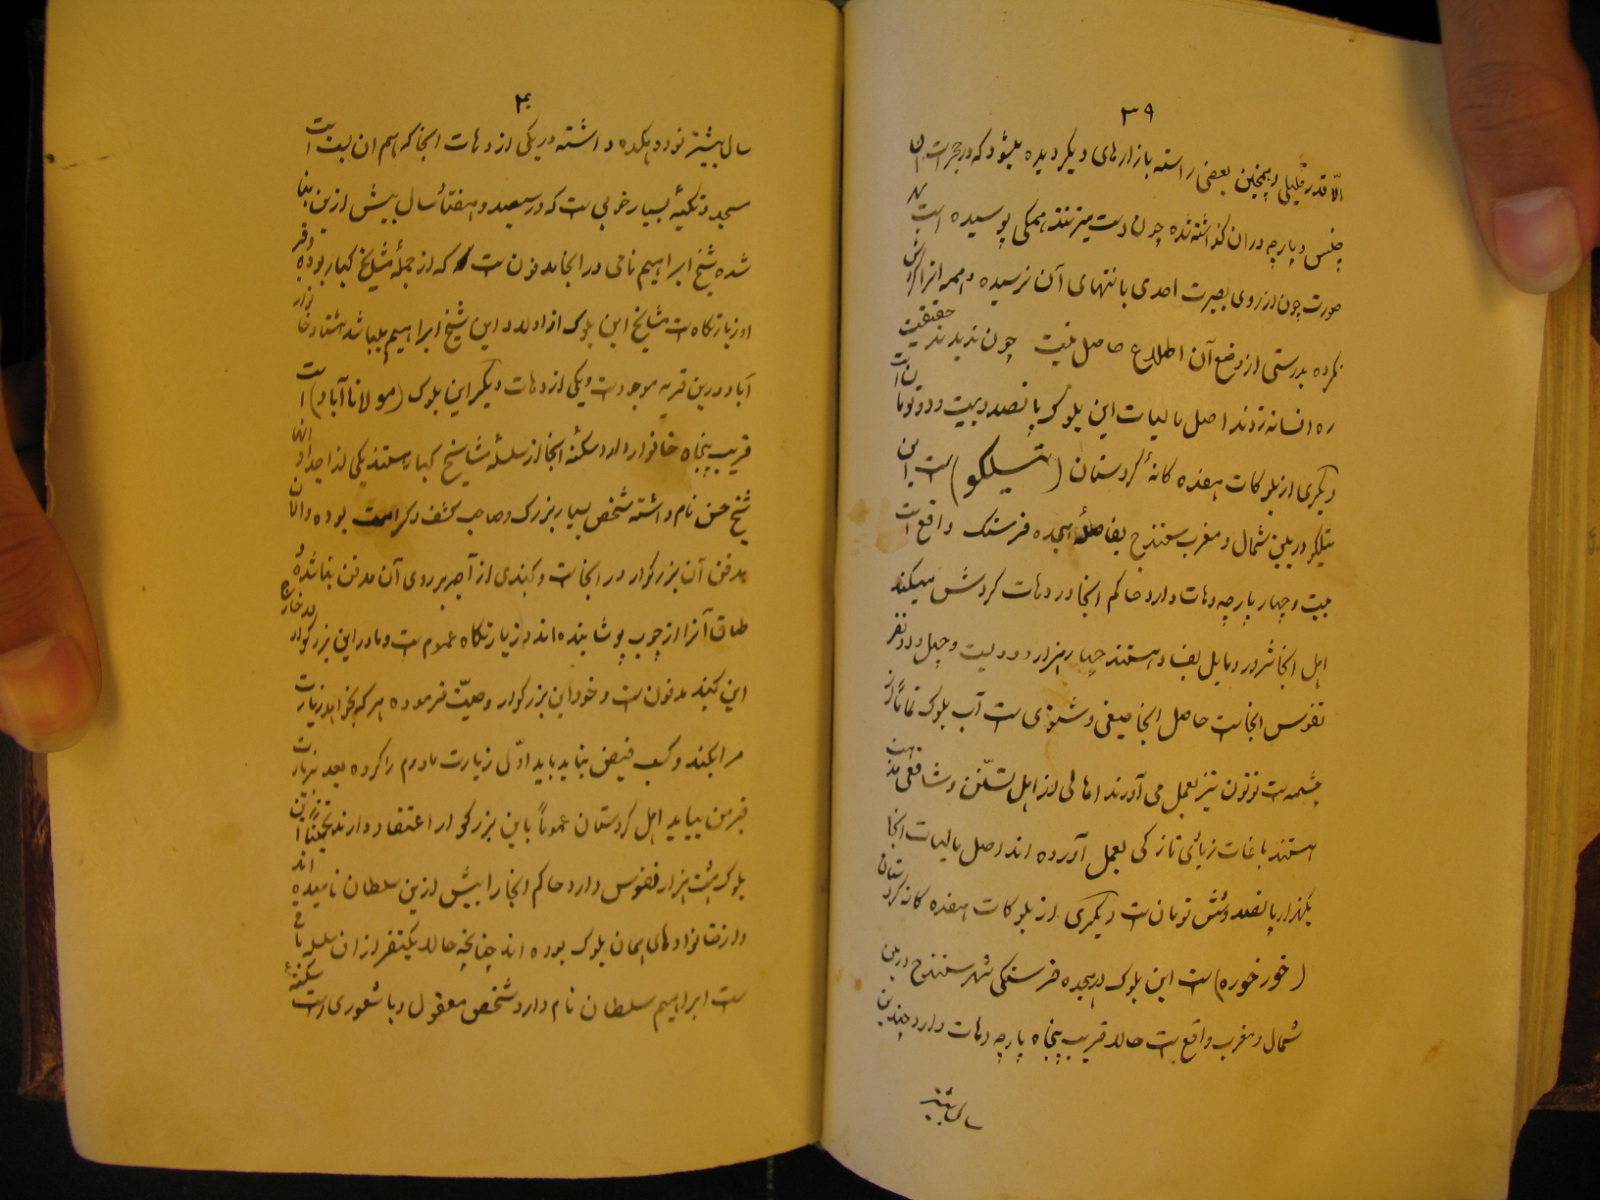 ۳۹
الّا قدر قلیلی و همچنین بعضی راسته بازارهای دیگر دیده میشود که در حجرات آن
جنس و پارچه در آن گذاشته شده چون دست میزنند همگی پوسیده است به
صورت چون از روی بصیرت احدی بانتهای آن نرسیده و همه آنرا گردش
نکرده بدرستی از وضع آن اطلاع حاصل نیست چون ندیدند حقیقت
ره افسانه زدند اصل مالیات این بلوک پانصد و بیست و دو تومان است
دیگری از بلوکات هفده گانهٔ کردستان (تیلکو) است این
تیلکو در بین شمال و مغرب سنندج بفاصلهٔ هیجده فرسنگ واقع است
بیست و چهار پارچه دهات دارد حاکم آنجا در دهات گردش میکند
اهل آنجا شرور و مایل بفساد هستند چهار هزار و دویست و چهل و دو نفر
نفوس آنجاست حاصل آنجا صیفی و شتوی است آب بلوک تماماً از
چشمه است توتون نیز بعمل می آورند اهالی از اهل تسنّن و شافعی مذهب
هستند باغات زیادی تازگی بعمل آورده اند اصل مالیات آنجا
یکهزار و پانصد و شش تومان است دیگری از بلوکات هفده گانه کردستان
(خورخوره) است این بلوک در هیجده فرسنگی شهر سنندج در بین
شمال و مغرب واقع است حالا قریب پنجاه پارچه دهات دارد چندین
سال پیشتر
۴۰
سال پیشتر نود و دهکده داشته در یکی از دهات آنجا که اسم آن است
مسجد و تکیهٔ بسیار خوبی است که در سیصد و هفتاد سال پیش ازین بنا
شده شیخ ابراهیم نامی در آنجا مدفون است که از جملهٔ مشایخ کبار بوده و قبر
او زیارتگاه است مشایخ این بلوک از اولاد این شیخ ابراهیم میباشد هشتاد خانوار
آباد درین قریه موجود است و یکی از دهات دیگر این بلوک (مولانا آباد) است
قریب پنجاه خانوار دارد سکنهٔ آنجا از سلسلهٔ مشایخ کبار هستند یکی از اجداد آنها
شیخ حسن نام داشته شخص بسیار بزرگ و صاحب کشف و کرامت بوده و الان
مدفن آن بزرگوار در آنجاست و گنبدی از آجر بر روی آن مدفن بنا شده
طاق آنرا از چوب پوشانیده اند و زیارتگاه عموم است و مادر این بزرگوار در خارج
این گنبد مدفون است و خود این بزرگوار وصیّت فرموده هر که بخواهد زیارت
مرا بکند و کسب فیض نماید باید اوّل زیارت مادرم را کرده بعد بزیارت
قبر من بیاید اهل کردستان عموماً باین بزرگوار اعتقاد دارند تخمیناً این
بلوک هشت هزار نفوس دارد حاکم آنجا را پیش ازین سلطان نامیده اند
و از خانواده های همان بلوک بوده اند چنانچه حالا یکنفر از آن سلسله باقی
است ابراهیم سلطان نام دارد شخص معقول و با شعوری است سکنهٔ